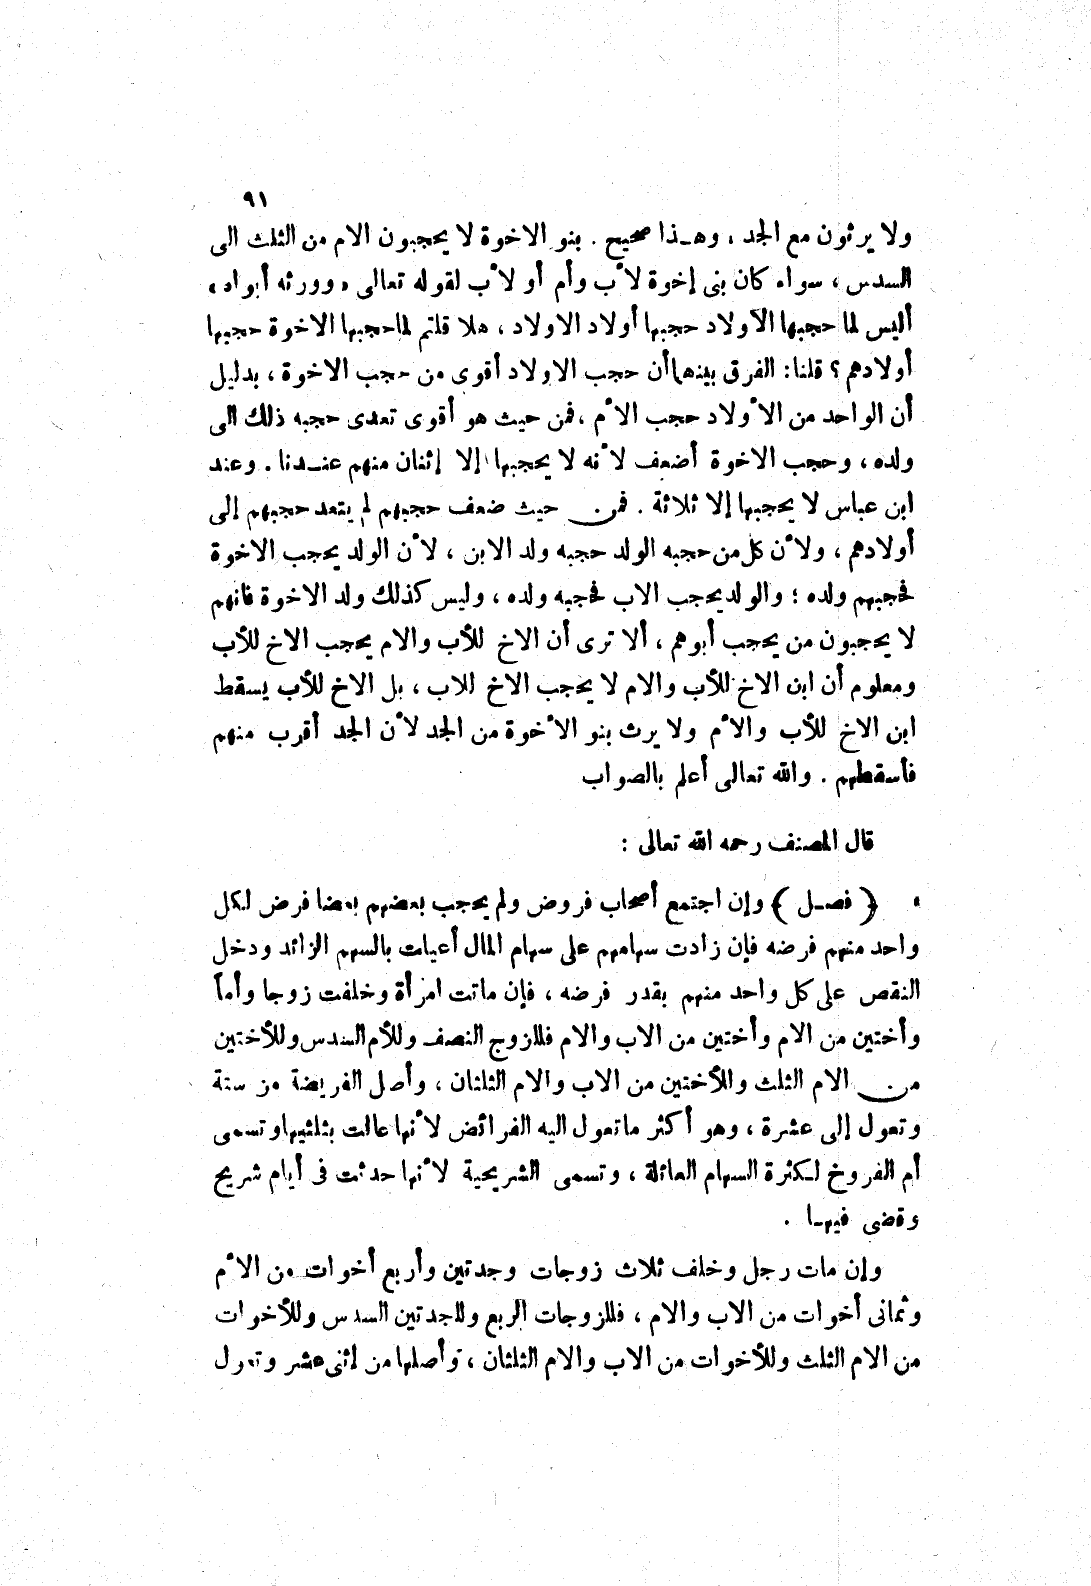 ٩١
ولا يرثون مع الجد ، وهـذا صحيح . بنو الاخوة لا يحجبون الام من الثلث الى
السدس ، سواء كان بنى إخوة لأب وأم أو لأب لقوله تعالى « وورثه أبواه »
أليس لما حجبها الأولاد حجبها أولاد الاولاد ، هلا قلتم لما حجبها الاخوة حجبها
أولادهم ؟ قلنا : الفرق بينهما أن حجب الاولاد أقوى من حجب الاخوة ، بدليل
أن الواحد من الأولاد حجب الأم ، فمن حيث هو أقوى تعدى حجبه ذلك الى
ولده ، وحجب الاخوة أضعف لأنه لا يحجبها إلا إثنان منهم عنـدنا . وعند
ابن عباس لا يحجبها إلا ثلاثة . فمن حيث ضعف حجبهم لم يتعد حجبهم إلى
أولادهم ، ولأن كل من حجبه الولد حجبه ولد الابن ، لأن الولد يحجب الاخوة
فحجبهم ولده ؛ والولد يحجب الاب فحجبه ولده ، وليس كذلك ولد الاخوة فانهم
لا يحجبون من يحجب أبوهم ، ألا ترى أن الاخ للأب والام يحجب الاخ للأب
ومعلوم أن ابن الاخ للأب والام لا يحجب الاخ للاب ، بل الاخ للأب يسقط
ابن الاخ للأب والأم ولا يرث بنو الأخوة من الجد لأن الجد أقرب منهم
فأسقطهم . والله تعالى أعلم بالصواب
قال المصنف رحمه الله تعالى :
﴿ فصـل ﴾ وإن اجتمع أصحاب فروض ولم يحجب بعضهم بعضا فرض لكل
واحد منهم فرضه فإن زادت سهامهم على سهام المال أعيلت بالسهم الزائد ودخل
النقص على كل واحد منهم بقدر فرضه ، فإن ماتت امرأة وخلفت زوجا وأماً
وأختين من الام وأختين من الاب والام فللزوج النصف وللأم السدس وللأختين
من الام الثلث وللأختين من الاب والام الثلثان ، وأصل الفريضة من ستة
وتعول إلى عشرة ، وهو أكثر ما تعول اليه الفرائض لأنها عالت بثلثيها وتسمى
أم الفروخ لـكثرة السهام العائلة ، وتسمى الشريحية لأنها حدثت فى أيام شريح
وقضى فيهـا .
وإن مات رجل وخلف ثلاث زوجات وجدتين وأربع أخوات من الأم
وثمانى أخوات من الاب والام ، فللزوجات الربع وللجدتين السدس وللأخوات
من الام الثلث وللأخوات من الاب والام الثلثان ، وأصلها من اثنى عشر وتعول